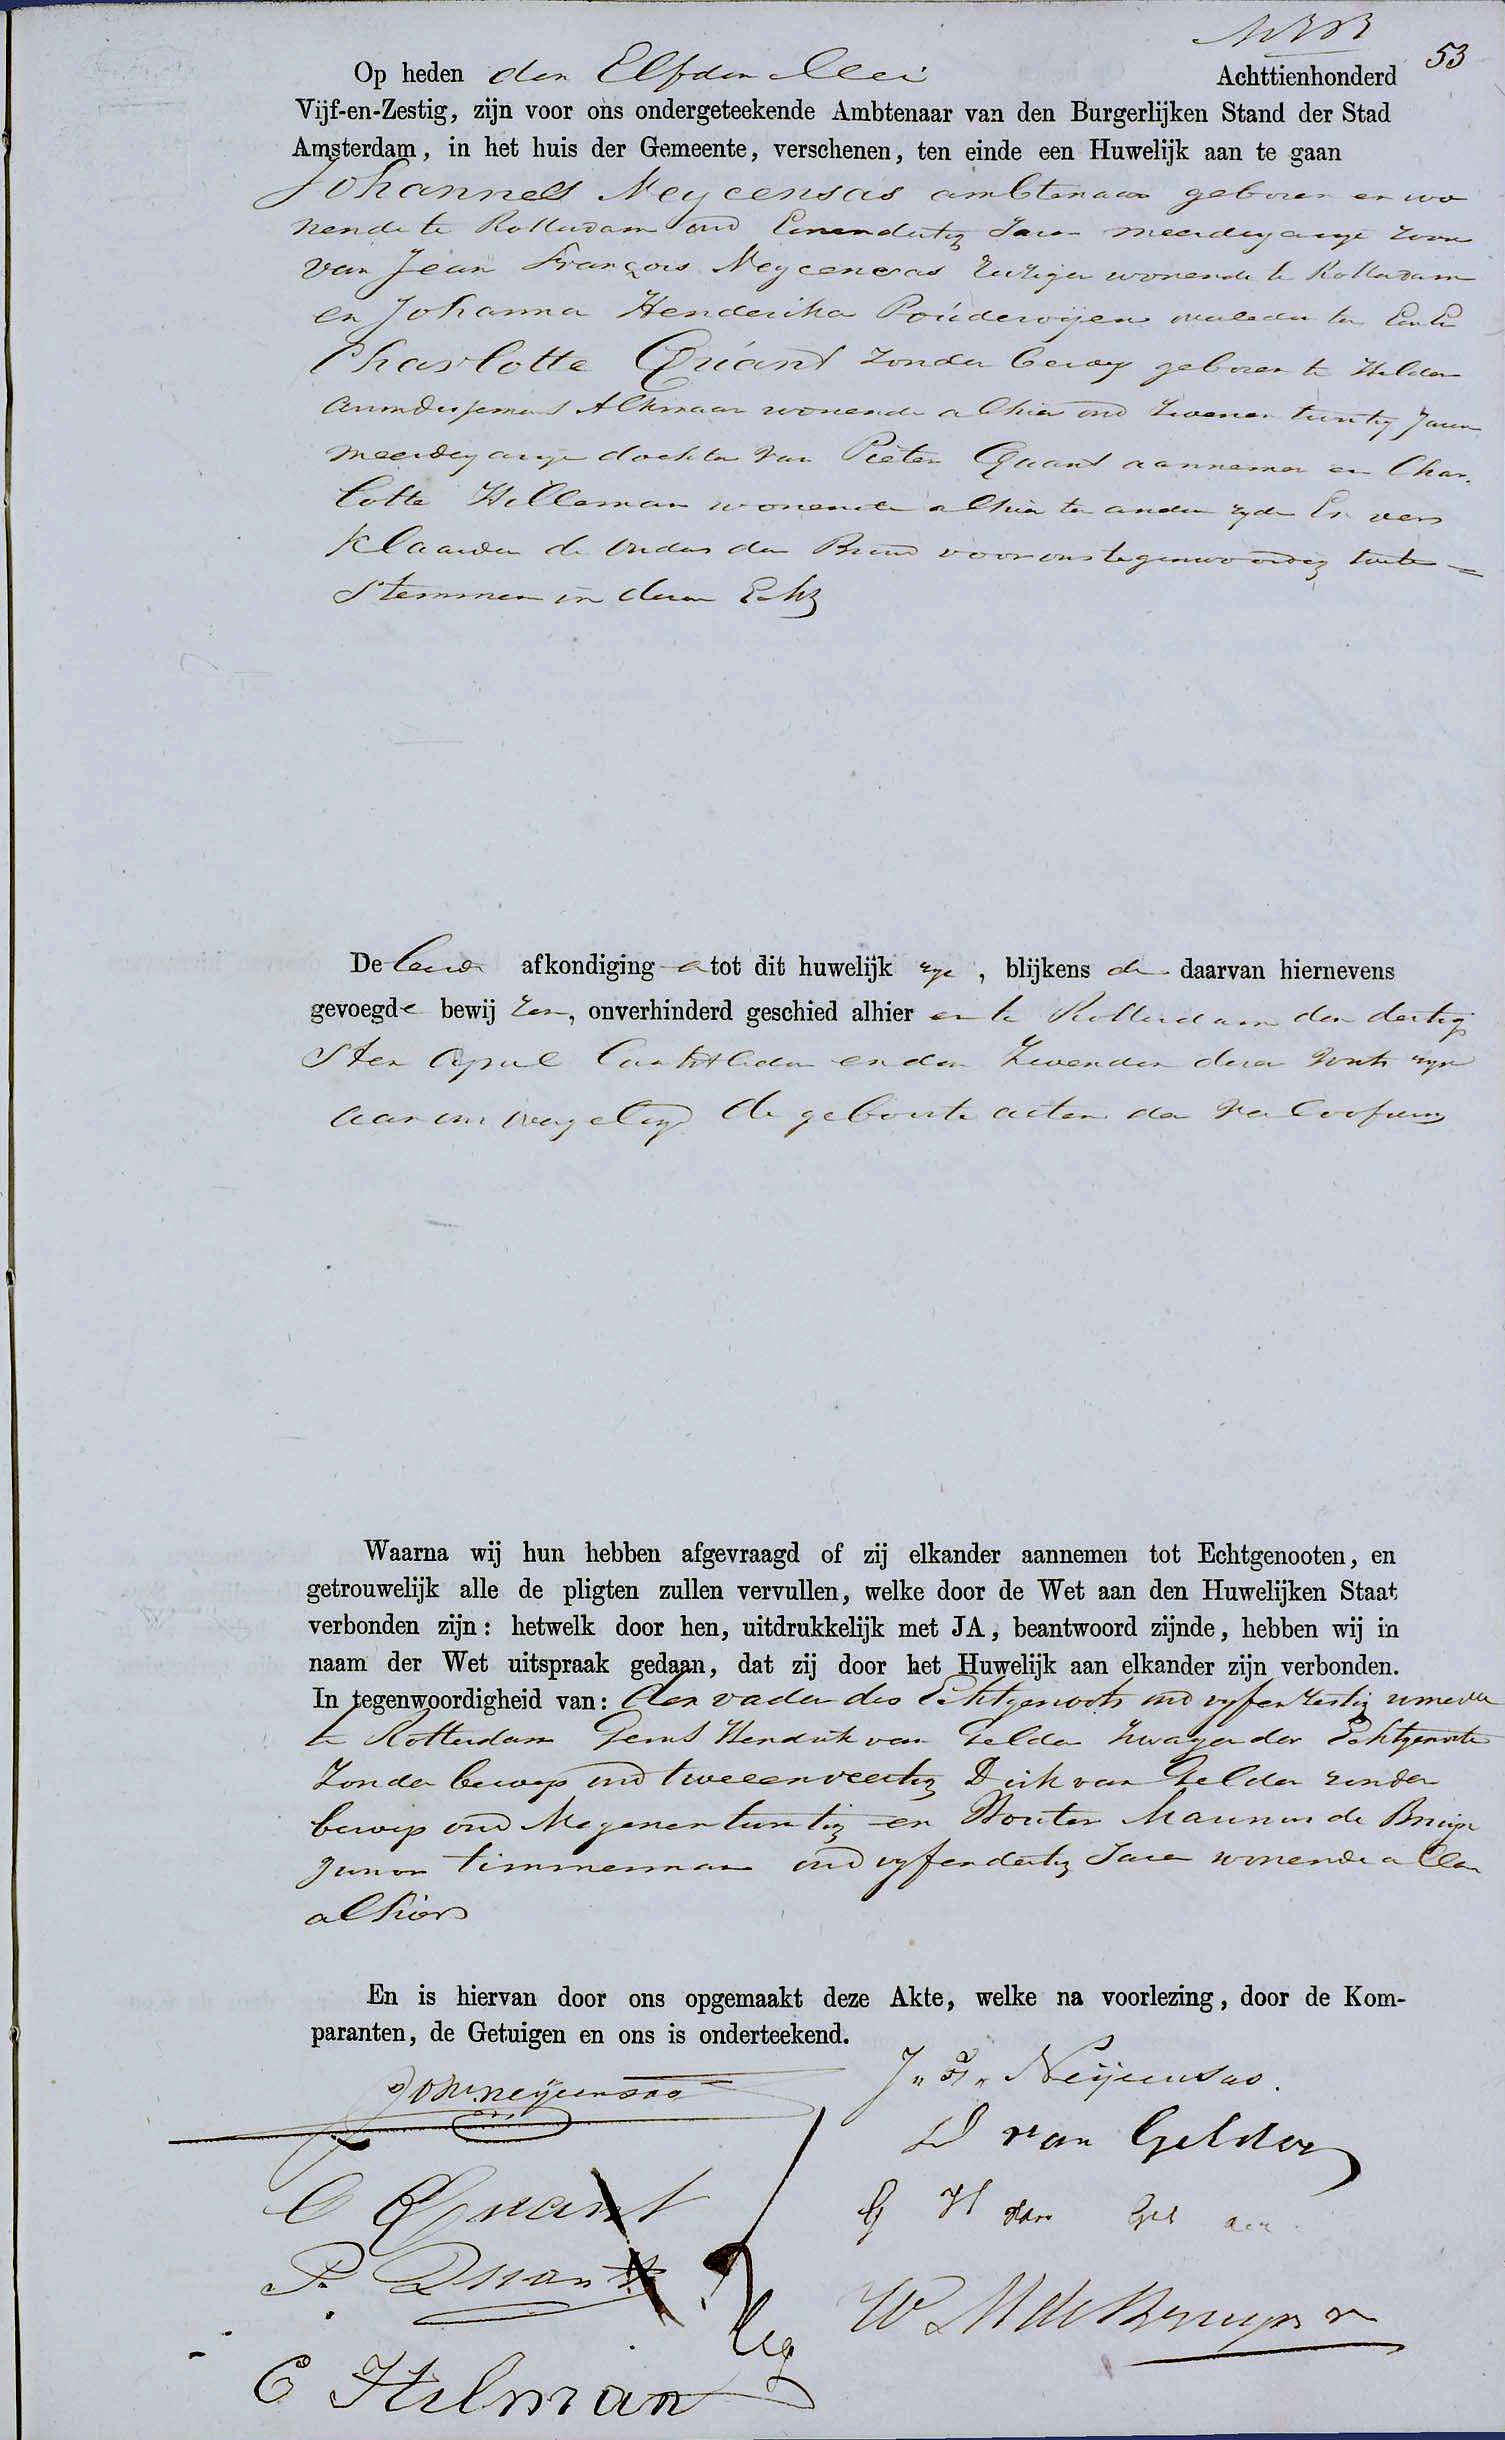 53
Op heden den Elfden Mei Achttienhonderd
Vijf-en-Zestig, zijn voor ons ondergeteekende Ambtenaar van den Burgerlijken Stand der Stad
Amsterdam, in het huis der Gemeente, verschenen, ten einde een Huwelijk aan te gaan
Johannes Neycensas ambtenaar geboren en wo
nende te Rotterdam oud Eenendertig Jaren meerderjarige zoon
van Jean François Neycensas wonende te Rotterdam
en Johanna Henderika Poúderoijen overleden ter Eenre
Charlotte Quant zonder beroep geboren te Helder
Alkmaar wonende alhier oud Tweeentwintig Jaren
meerderjarige dochter van Pieter Quant aannemer en Char-
lotte Hilleman wonende alhier ter andere zyde En ver
klaarden de Ouders der Bruid voor ons tegenwoordig toete=
stemmen in deren Echt
De beide afkondiging en tot dit huwelijk zyn, blijkens de daarvan hiernevens
gevoegde bewijzen, onverhinderd geschied alhier en te Rotterdam den dertig
sten April laatstleden en den Zevenden dezer zyn
aan ons overgelegd de geboorte acten der verloofden
Waarna wij hun hebben afgevraagd of zij elkander aannemen tot Echtgenooten, en
getrouwelijk alle de pligten zullen vervullen, welke door de Wet aan den Huwelijken Staat
verbonden zijn: hetwelk door hen, uitdrukkelijk met JA, beantwoord zijnde, hebben wij in
naam der Wet uitspraak gedaan, dat zij door het Huwelijk aan elkander zijn verbonden.
In tegenwoordigheid van: den vader des Echtgenoots oud vyfenzestig wonende
te Rotterdam Gerrit Hendrik van Gelder Zwager der Echtgenoote
Zonder beroep oud tweeenveertig Dirk van Gelder zonder
beroep oud Negenentwintig en Wouter Marinus de Bruijn
Junior timmerman oud vyfendertig Jaren wonende allen
alhier
En is hiervan door ons opgemaakt deze Akte, welke na voorlezing, door de Kom-
paranten, de Getuigen en ons is onderteekend.
Joh. neÿcensas
J. F. Neijcensas.
D van Gelder
C Quant
G H van Gelder
P. Quant
W M de Bruyn Jr
C Hilman